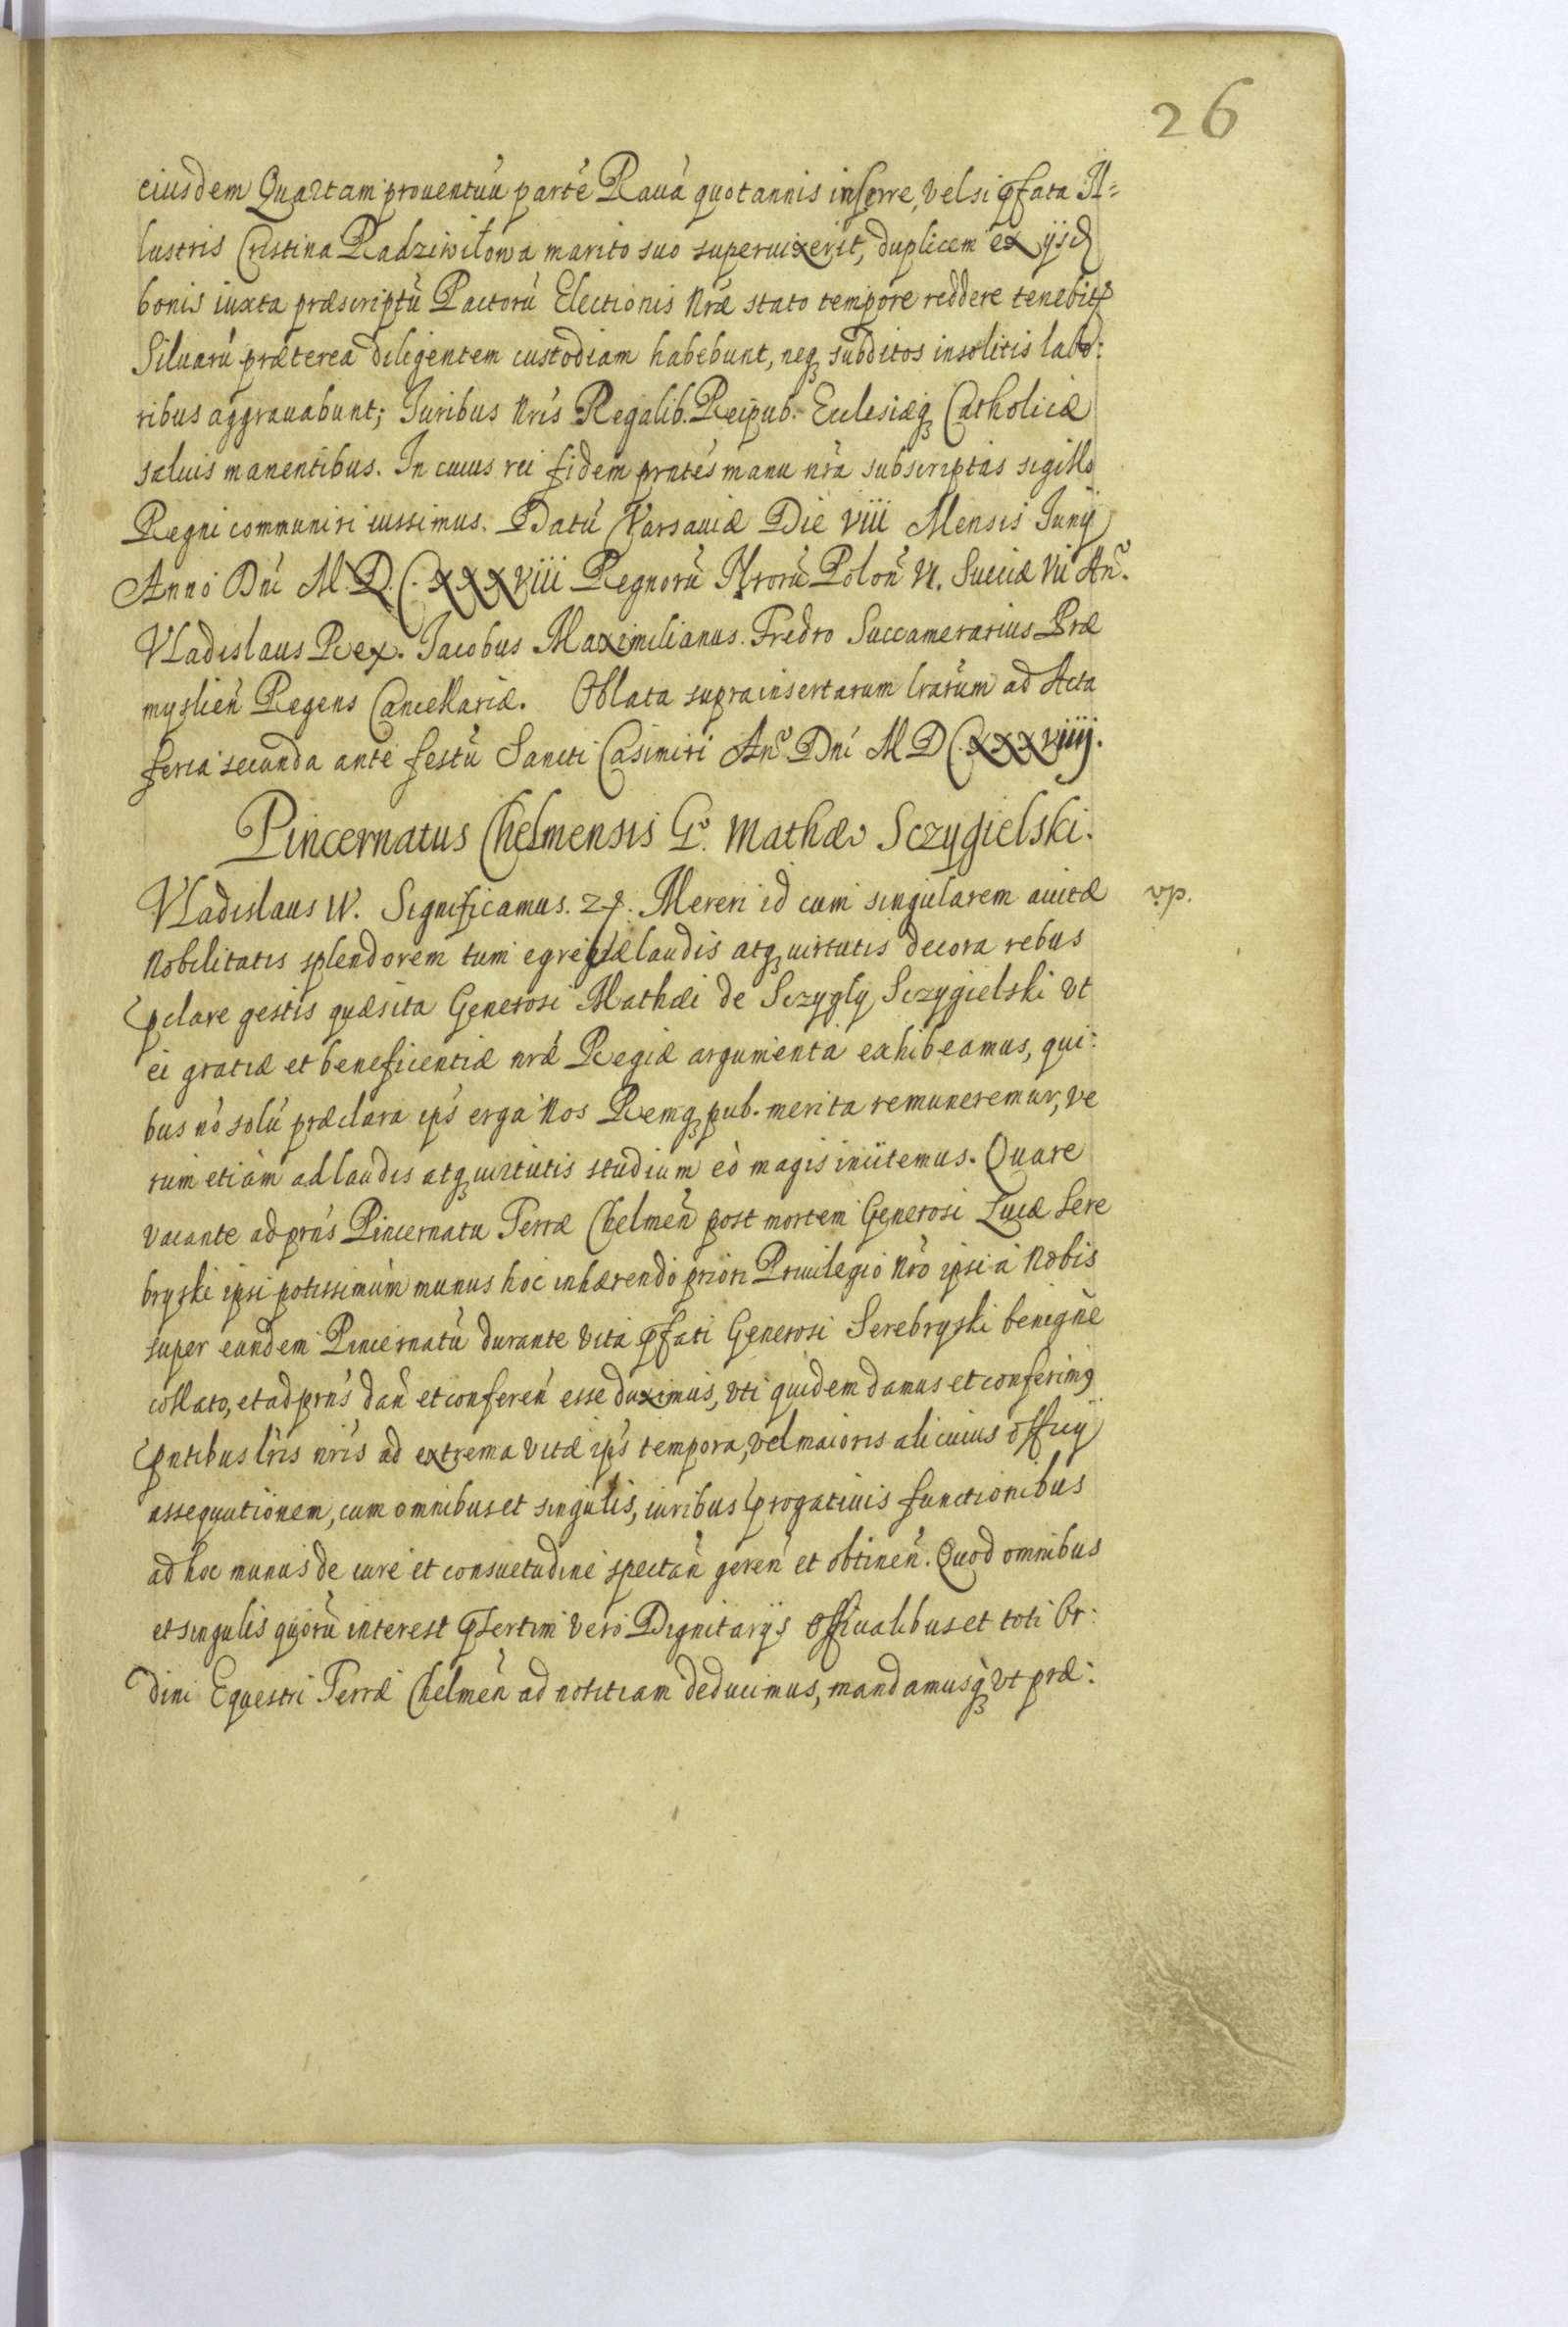 26
eiusdem Quartam prouentuũ partẽ Rauã quotannis inferre, vel si p̃fata Il=
lustris Cristina Radziwiłowa marito suo superuixerit, duplicem ex ijsd
bonis iuxta præscriptũ Pactorũ Electionis Nræ stato tempore reddere tenebit
Siluarũ præterea diligentem custodiam habebunt, neqꝫ subditos insolitis labo:
ribus aggrauabunt; Iuribus Nris Regalib. Reipub. Ecclesiæqꝫ Catholicæ
saluis manentibus. In cuius rei fidem prntes manu nra subscriptas sigillo
Regni communiri iussimus. Datũ Varsauiæ Die VIII Mensis Iunij
Anno Dni M.D.C.XXXVIII Regnorũ Nrorũ Poloñ VI. Sueciæ VII Añ.
Vladislaus Rex. Iacobus Maximilianus Fredro Succamerarius Præ
myslieñ Regens Cancellariæ. Oblata suprainsertarum lrarum ad Acta
feria secunda ante festũ Sancti Casimiri Añ Dni M D C XXXVIIIJ.
Pincernatus Chelmensis Gº. Mathæo Sczygielski.
Vladislaus IV. Significamus. Mereri id cum singularem auitæ
vp.
Nobilitatis splendorem tum egregiæ laudis atqꝫ uirtutis decora rebus
p̃clare gestis quæsita Generosi Mathæi de Sczygły Sczygielski vt
ei gratiæ et beneficentiæ nræ Regiæ argumenta exhibeamus, qui:
bus nõ solũ præclara ips erga Nos Remqꝫ pub. merita remuneremur, ve
rum etiam ad laudis atqꝫ uirtutis studium eò magis inuitemus. Quare
vacante ad prns Pincernatu Terræ Chelmeñ post mortem Generosi Lucæ Sere
bryski ipsi potissimùm munus hoc inhærendo priori Priuilegio Nro ipsi à Nobis
super eundem Pincernatũ durante vita p̃fati Generosi Serebryski benignè
collato, et ad prns dañ et confereñ esse duximus, vti quidem damus et conferimꝰ
p̃ntibus lris nris ad extrema vitæ ips tempora, vel maioris alicuius officij
assequutionem, cum omnibus et singulis, iuribus p̃rogatiuis functionibus
ad hoc munus de iure et consuetudine spectañ gereñ et obtineñ. Quod omnibus
et singulis quorũ interest p̃sertim verò Dignitarijs Officialibus et toti Or:
dini Equestri Terræ Chelmeñ ad notitiam deducimus, mandamusqꝫ vt præ: